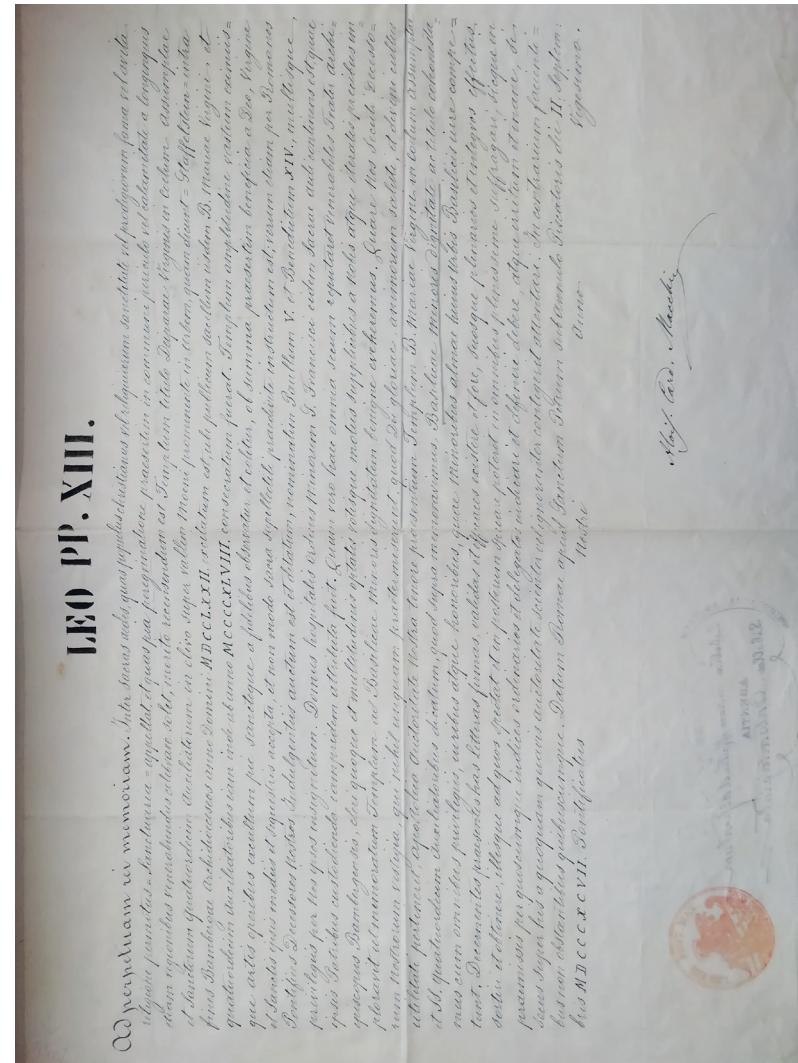 LEO PP. XIII.
Ad perpetuam rei memoriam. Inter sacras aedes quas populus christianus vel reliquiarum sanctitate vel prodigiorum fama vel avita
religione permotus = Sanctuaria = appellat, et quas pia peregrinatione praesertim in communi periculo vel calamitate a longinquis
etiam regionibus venerabundus celebrare solet, merito recensendum est Templum titulo Deiparae Virginis in coelum assumptae
et Sanctorum Quatuordecim Auxiliatorum in clivo super vallem Moeni prominente in urbem, quam dicunt = Staffelstein = intra
fines Bambergae Archidioeceseos anno Domini MDCCLXXII. excitatum est ubi pullicum sacellum iisdem B. Mariae Virgine, et
quatuordecim Auxiliatoribus iam inde ab anno MCCCCXLVIII. consecratum fuerat. Templum amplitudine vastum eximiis =
que artis operibus excultum pie sancteque a fidelibus observatur et colitur, ob summa praesertim beneficia a Deo, Virgine
et Sanctis eius modis et ingentis accepta, et non modo sacra supellectili praedivite instructum est; verum etiam per Romanos
Pontifices Decessores Nostros Indulgentiis auctum est et ditatum, nominatim Paullum V. et Benedictum XIV., multisque
privilegiis per Nos quos insignitum. Domus hospitalis Ordinis Minorum S. Francisci eidem Sacrae aedi continens est quae
ipsis Patribus custodienda iampridem attributa fuit. Quum vero haec omnia secum reputaret Venerabilis Frater Archi=
episcopus Bambergensis, cleri quoque et multitudinis optatis, votisque motus supplicibus a Nobis atque iteratis precibus im=
ploravit ut memoratum Templum ad Basilicae Minoris dignitatem benigne eveheremus. Quare Nos Sacelli Decesso=
rum Nostrorum vestigia, qui nihil unquam praetermiserunt quod Dei gloriae, animorum saluti, et divini cultus
utilitati pertinent, apostolica auctoritate Nostra tenore praesentium Templum B. Mariae Virgini in coelum assumptae
et SS. quatuordecim Auxiliatoribus dicatum, quod supra memoravimus, Basilicae minoris dignitate ac titulo cohonesta=
mus cum omnibus privilegiis, iuribus atque honoribus, quae Minoribus almae huius Urbis Basilicis iure compe=
tunt. Decernentes praesentes has litteras firmas validas efficaces existere et fore, suosque plenarios et integros effectus
sortiri et obtinere, illisque ad quos spectat et in posterum spectare poterit in omnibus plenissime suffragari, sicque in
praemissis per quoscumque iudices ordinarios et delegatos iudicari et definiri debere, atque irritum et inane, si
secus super his a quoquam quavis auctoritate scienter vel ignoranter contigerit attentari. In contrarium facienti=
bus non obstantibus quibuscumque. Datum Romae apud Sanctum Petrum sub annulo Piscatoris die II Septem=
bris MDCCCXCVII. Pontificatus Nostri Anno Vigesimo.
Alois. Card. Macchi